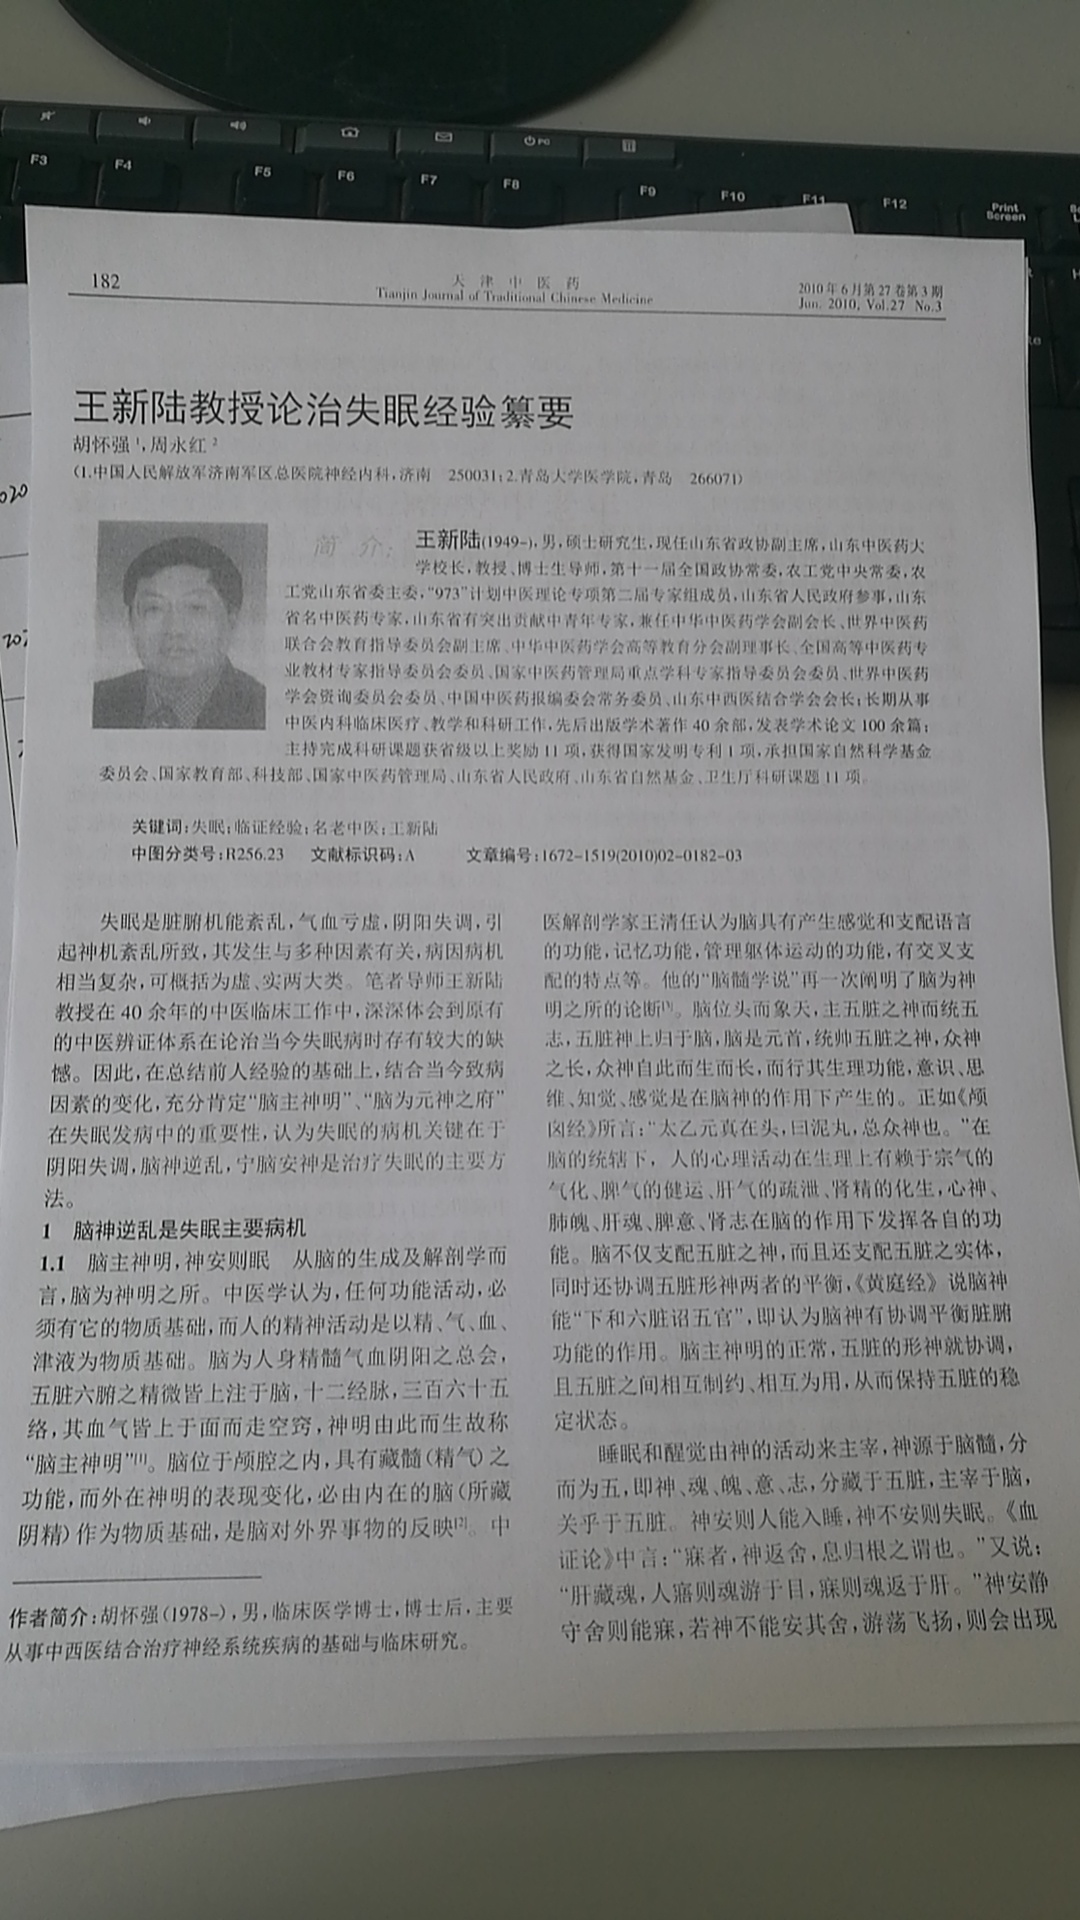 F3
F4
F5
F6
F7
F8
F9
F10
F11
F12
Print
Screen
PC
182
天津中医药
Tianjin Journal of Traditional Chinese Medicine
2010年6月第27卷第3期
Jun. 2010, Vol.27 No.3
王新陆教授论治失眠经验纂要
胡怀强1,周永红2
(1.中国人民解放军济南军区总医院神经内科,济南 250031;2.青岛大学医学院,青岛 266071)
简 介:
王新陆(1949-),男,硕士研究生,现任山东省政协副主席,山东中医药大
学校长,教授、博士生导师,第十一届全国政协常委,农工党中央常委,农
工党山东省委主委,“973”计划中医理论专项第二届专家组成员,山东省人民政府参事,山东
省名中医药专家,山东省有突出贡献中青年专家,兼任中华中医药学会副会长、世界中医药
联合会教育指导委员会副主席、中华中医药学会高等教育分会副理事长、全国高等中医药专
业教材专家指导委员会委员、国家中医药管理局重点学科专家指导委员会委员、世界中医药
学会资询委员会委员、中国中医药报编委会常务委员、山东中西医结合学会会长;长期从事
中医内科临床医疗、教学和科研工作,先后出版学术著作40余部,发表学术论文100余篇;
主持完成科研课题获省级以上奖励11项,获得国家发明专利1项,承担国家自然科学基金
委员会、国家教育部、科技部、国家中医药管理局、山东省人民政府、山东省自然基金、卫生厅科研课题11项。
关键词:失眠;临证经验;名老中医;王新陆
中图分类号:R256.23 文献标识码:A 文章编号:1672-1519(2010)02-0182-03
失眠是脏腑机能紊乱,气血亏虚,阴阳失调,引
起神机紊乱所致,其发生与多种因素有关,病因病机
相当复杂,可概括为虚、实两大类。笔者导师王新陆
教授在40余年的中医临床工作中,深深体会到原有
的中医辨证体系在论治当今失眠病时存有较大的缺
憾。因此,在总结前人经验的基础上,结合当今致病
因素的变化,充分肯定“脑主神明”、“脑为元神之府”
在失眠发病中的重要性,认为失眠的病机关键在于
阴阳失调,脑神逆乱,宁脑安神是治疗失眠的主要方
法。
1 脑神逆乱是失眠主要病机
1.1 脑主神明,神安则眠 从脑的生成及解剖学而
言,脑为神明之所。中医学认为,任何功能活动,必
须有它的物质基础,而人的精神活动是以精、气、血、
津液为物质基础。脑为人身精髓气血阴阳之总会,
五脏六腑之精微皆上注于脑,十二经脉,三百六十五
络,其血气皆上于面而走空窍,神明由此而生故称
“脑主神明”[1]。脑位于颅腔之内,具有藏髓(精气)之
功能,而外在神明的表现变化,必由内在的脑(所藏
阴精)作为物质基础,是脑对外界事物的反映[2]。中
作者简介:胡怀强(1978-),男,临床医学博士,博士后,主要
从事中西医结合治疗神经系统疾病的基础与临床研究。
医解剖学家王清任认为脑具有产生感觉和支配语言
的功能,记忆功能,管理躯体运动的功能,有交叉支
配的特点等。他的“脑髓学说”再一次阐明了脑为神
明之所的论断[3]。脑位头而象天,主五脏之神而统五
志,五脏神上归于脑,脑是元首,统帅五脏之神,众神
之长,众神自此而生而长,而行其生理功能,意识、思
维、知觉、感觉是在脑神的作用下产生的。正如《颅
囟经》所言:“太乙元真在头,曰泥丸,总众神也。”在
脑的统辖下,人的心理活动在生理上有赖于宗气的
气化、脾气的健运、肝气的疏泄、肾精的化生,心神、
肺魄、肝魂、脾意、肾志在脑的作用下发挥各自的功
能。脑不仅支配五脏之神,而且还支配五脏之实体,
同时还协调五脏形神两者的平衡,《黄庭经》说脑神
能“下和六脏诏五官”,即认为脑神有协调平衡脏腑
功能的作用。脑主神明的正常,五脏的形神就协调,
且五脏之间相互制约、相互为用,从而保持五脏的稳
定状态。
睡眠和醒觉由神的活动来主宰,神源于脑髓,分
而为五,即神、魂、魄、意、志,分藏于五脏,主宰于脑,
关乎于五脏。神安则人能入睡,神不安则失眠。《血
证论》中言:“寐者,神返舍,息归根之谓也。”又说:
“肝藏魂,人寤则魂游于目,寐则魂返于肝。”神安静
守舍则能寐,若神不能安其舍,游荡飞扬,则会出现